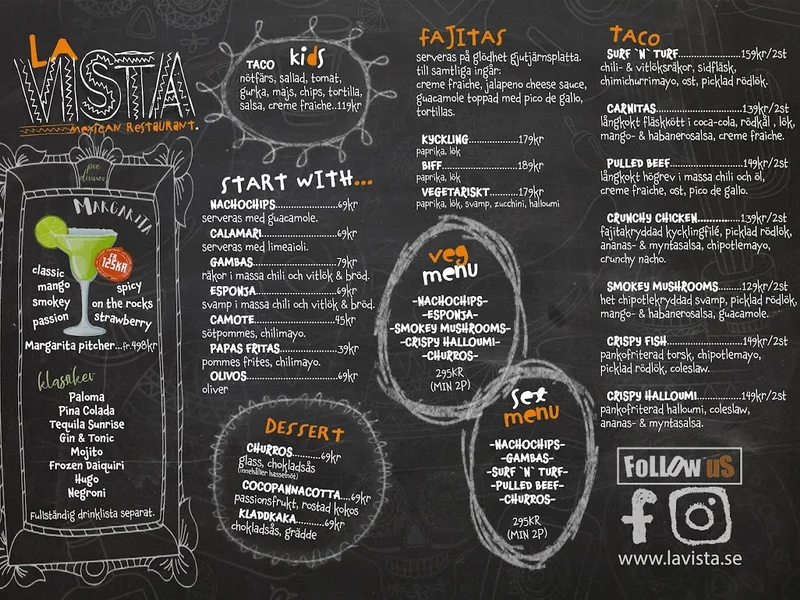 LA
VISTA
MEXICAN RESTAURANT.
pre
dinner
MARGARITA
FR
125KR
classic
mango
smokey
passion
spicy
on the rocks
strawberry
Margarita pitcher...fr.498kr
klassiker
Paloma
Pina Colada
Tequila Sunrise
Gin & Tonic
Mojito
Frozen Daiquiri
Hugo
Negroni
Fullständig drinklista separat.
TACO kids
nötfärs, sallad, tomat,
gurka, majs, chips, tortilla,
salsa, creme fraiche..119kr
START WITH...
NACHOCHIPS.....................69kr
serveras med guacamole.
CALAMARI........................69kr
serveras med limeaioli.
GAMBAS...........................79kr
räkor i massa chili och vitlök & bröd.
ESPONJA..........................69kr
svamp i massa chili och vitlök & bröd.
CAMOTE..........................45kr
sötpommes, chilimayo.
PAPAS FRITAS...................39kr
pommes frites, chilimayo.
OLIVOS...........................69kr
oliver
DESSERT
CHURROS..............69kr
glass, chokladsås
(innehåller hasselnöt)
COCOPANNACOTTA...69kr
passionsfrukt, rostad kokos
KLADDKAKA...........69kr
chokladsås, grädde
FAJITAS
serveras på glödhet gjutjärnsplatta.
till samtliga ingår:
creme fraiche, jalapeno cheese sauce,
guacamole toppad med pico de gallo,
tortillas.
KYCKLING....................179kr
paprika, lök
BIFF............................189kr
paprika, lök
VEGETARISKT...............179kr
paprika, lök, svamp, zucchini, halloumi
veg
menu
-NACHOCHIPS-
-ESPONJA-
-SMOKEY MUSHROOMS-
-CRISPY HALLOUMI-
-CHURROS-
295KR
(MIN 2P)
set
menu
-NACHOCHIPS-
-GAMBAS-
-SURF `N` TURF-
-PULLED BEEF-
-CHURROS-
295KR
(MIN 2P)
TACO
SURF `N` TURF..................159kr/2st
chili- & vitlöksräkor, sidfläsk,
chimichurrimayo, ost, picklad rödlök.
CARNITAS........................139kr/2st
långkokt fläskkött i coca-cola, rödkål , lök,
mango- & habanerosalsa, creme fraiche.
PULLED BEEF....................149kr/2st
långkokt högrev i massa chili och öl,
creme fraiche, ost, pico de gallo.
CRUNCHY CHICKEN..............139kr/2st
fajitakryddad kycklingfilé, picklad rödlök,
ananas- & myntasalsa, chipotlemayo,
crunchy nacho.
SMOKEY MUSHROOMS.........129kr/2st
het chipotlekryddad svamp, picklad rödlök,
mango- & habanerosalsa, guacamole.
CRISPY FISH.....................149kr/2st
pankofriterad torsk, chipotlemayo,
picklad rödlök, coleslaw.
CRISPY HALLOUMI..............149kr/2st
pankofriterad halloumi, coleslaw,
ananas- & myntasalsa.
FOLLOW US
www.lavista.se